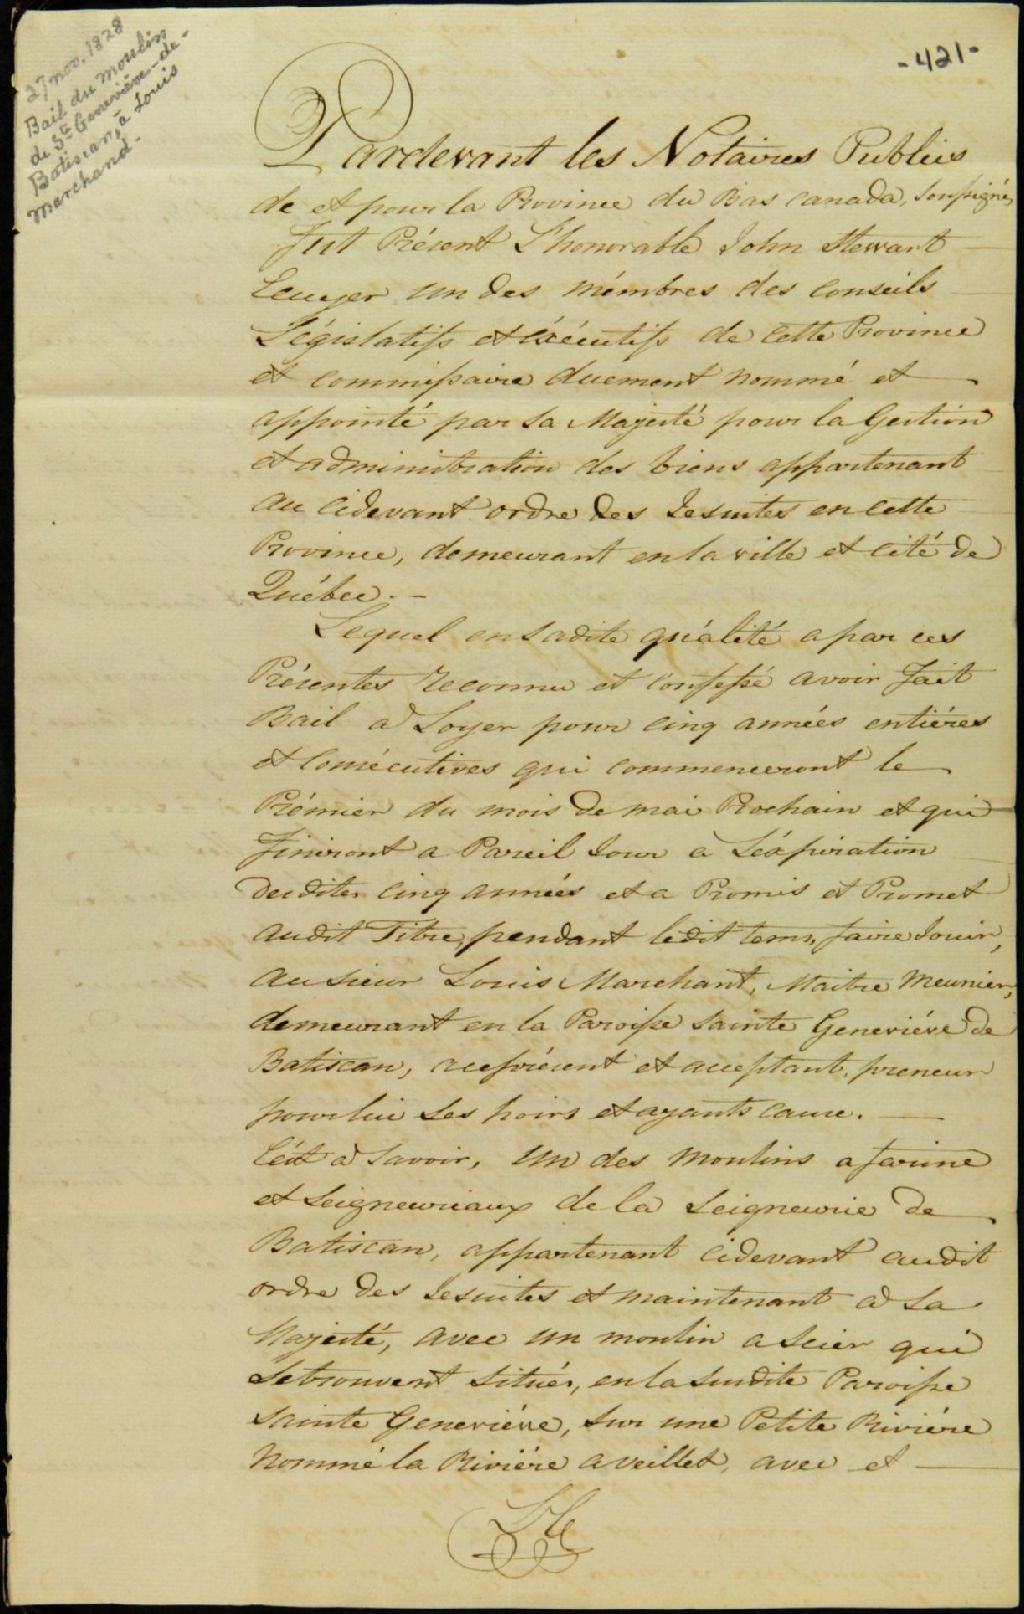 27 nov. 1828
Bail du moulin
de Ste Geneviève-de-
Batiscan, à Louis
Marchand.-
-421-
Pardevant les Notaires Publics
de et pour la Province du Bas Canada, Soussignés
Fut Présent L'honorable John Stewart
Ecuyer un des mémbres des Conseils
Législatifs et éxécutifs de cette Province
et Commissaire duement nommé et
appointé par Sa Majesté pour la Gestion
et administration des biens appartenant
au cidevant ordre des Jesuites en cette
Province, demeurant en la ville et cité de
Québec.-
Lequel en sadite qualité a par ces
Présentes reconnu et confessé avoir fait
Bail a Loyer pour cinq années entiéres
et consécutives qui commenceront le
Prémier du mois de mai Prochain et qui
finiront a Pareil Jour a L'éxpiration
desdites cinq années et a Promis et Promet
audit Titre, pendant ledit tems, faire Jouir,
au Sieur Louis Marchant, Maitre Meunier,
demeurant en la Paroisse Sainte Geneviéve de
Batiscan, a ce présent et acceptant, preneur
pour lui Ses hoirs et ayants cause.
C'ést a Savoir, Un des moulins a farine
et Seigneuriaux de la Seigneurie de
Batiscan, appartenant cidevant audit
ordre des Jesuites et maintenant a Sa
Majesté, avec un moulin a Scier qui
Setrouvent situés, en la Susdite Paroisse
Sainte Geneviéve, Sur une Petite Riviére
Nommé la Riviére a veillet, avec et